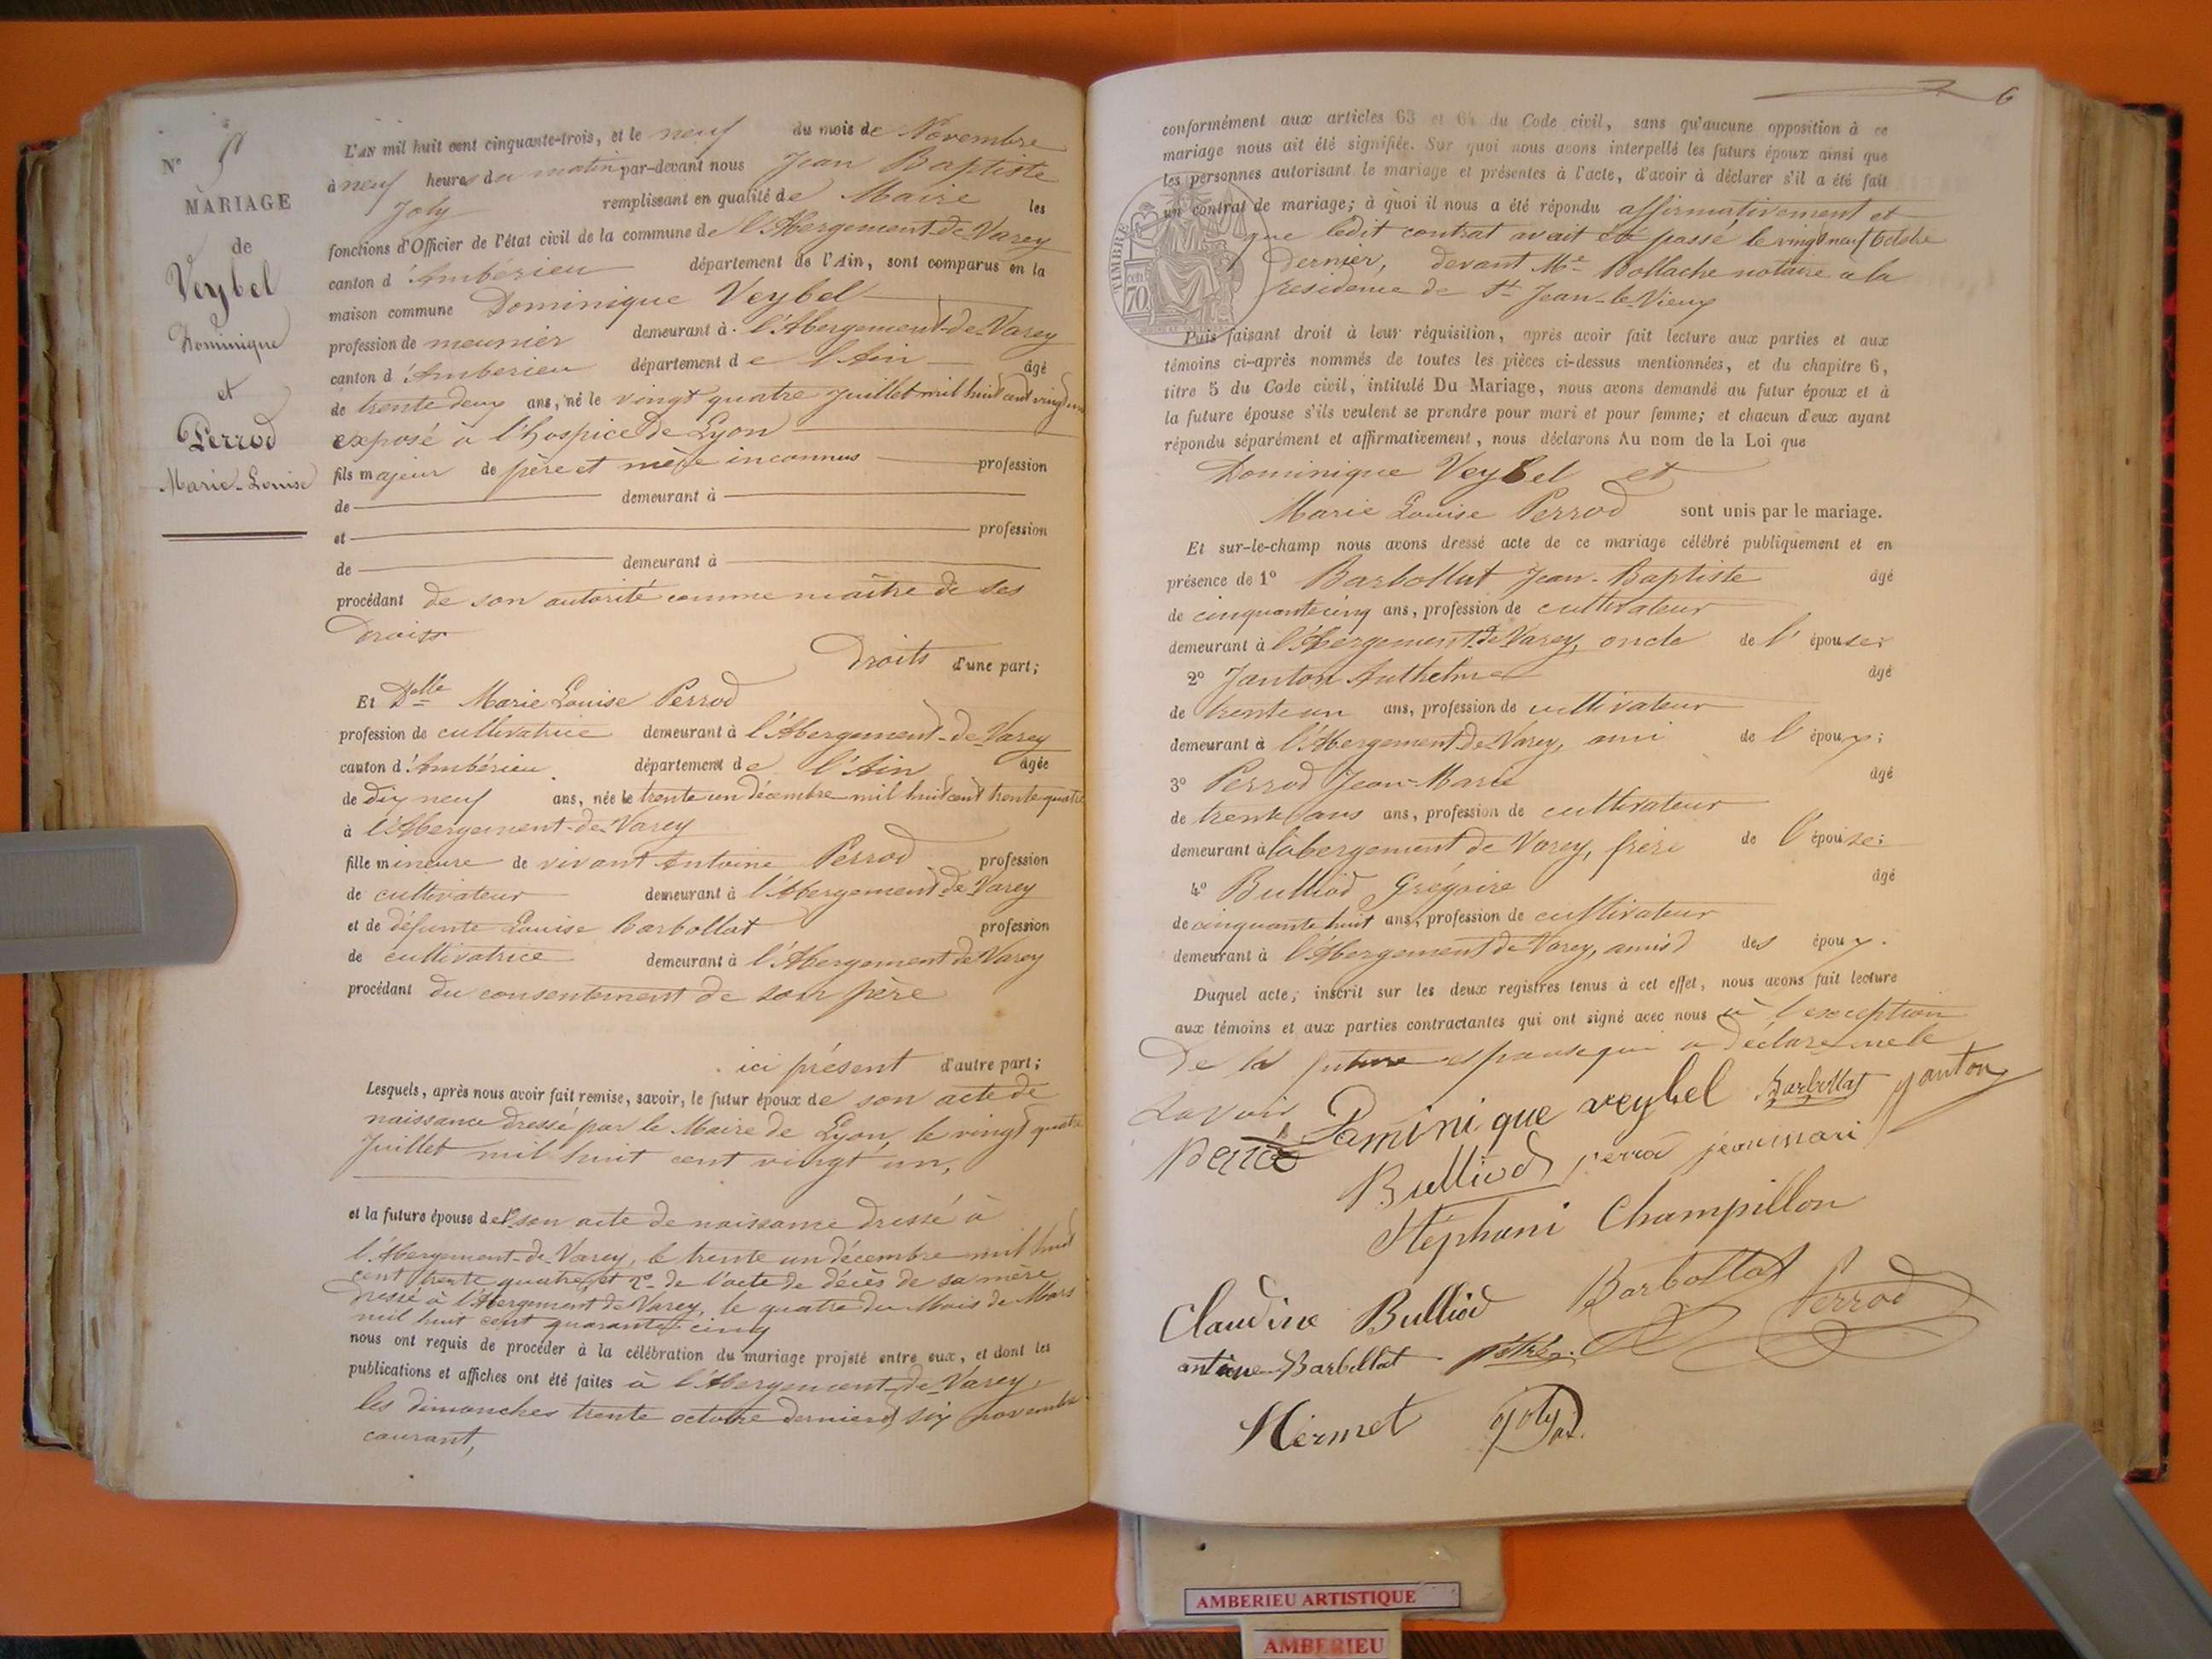 N°
MARIAGE
de
Veybel
Dominique
et
Perrod
Marie-Louise
L'AN mil huit cent cinquante-trois, et le neuf du mois de Novembre
à neuf heures du matin par-devant nous Jean Baptiste
Joly remplissant en qualité de Maire les
fonctions d'Officier de l'état civil de la commune de l'Abergement-de-Varey
canton d'Ambérieu département de l'Ain, sont comparus en la
maison commune Dominique Veybel
profession de meunier demeurant à l'Abergement-de-Varey
canton d'Ambérieu département de l'Ain âgé
de trente deux ans, né le vingt quatre Juillet mil huit cent vingt un
exposé à l'hospice de Lyon
fils majeur de père et mère inconnus profession
de demeurant à
et profession
de demeurant à
procédant de son autorité comme maître de ses
droits
Droits d'une part;
Et Delle Marie Louise Perrod
profession de cultivatrice demeurant à l'Abergement-de-Varey
canton d'Ambérieu département de l'Ain âgée
de dix neuf ans, née le trente un décembre mil huit cent trente quatre
à l'Abergement-de-Varey
fille mineure de vivant Antoine Perrod profession
de cultivateur demeurant à l'Abergement de Varey
et de défunte Louise Barbollat profession
de cultivatrice demeurant à l'Abergement de Varey
procédant du consentement de son père
ici présent d'autre part;
Lesquels, après nous avoir fait remise, savoir, le futur époux de son acte de
naissance dressé par le Maire de Lyon, le vingt quatre
Juillet mil huit cent vingt un,
et la future épouse de 1° son acte de naissance dressé à
l'Abergement-de-Varey, le trente un décembre mil huit
cent trente quatre, et 2° de l'acte de décès de sa mère
dressé à l'Abergement de Varey, le quatre du Mois de Mars
mil huit cent quarante cinq
nous ont requis de procéder à la célébration du mariage projeté entre eux, et dont les
publications et affiches ont été faites à l'Abergement-de-Varey,
les dimanches trente octobre dernier six novembre
courant,
6
conformément aux articles 63 et 64 du Code civil, sans qu'aucune opposition à ce
mariage nous ait été signifiée. Sur quoi nous avons interpellé les futurs époux ainsi que
les personnes autorisant le mariage et présentes à l'acte, d'avoir à déclarer s'il a été fait
un contrat de mariage; à quoi il nous a été répondu affirmativement et
que ledit contrat avait été passé le vingt neuf octobre
dernier, devant Me Bollache notaire à la
résidence de St Jean-le-Vieux
TIMBRE
70
Puis faisant droit à leur réquisition, après avoir fait lecture aux parties et aux
témoins ci-après nommés de toutes les pièces ci-dessus mentionnées, et du chapitre 6,
titre 5 du Code civil, intitulé Du Mariage, nous avons demandé au futur époux et à
la future épouse s'ils veulent se prendre pour mari et pour femme; et chacun d'eux ayant
répondu séparément et affirmativement, nous déclarons Au nom de la Loi que
Dominique Veybel et
Marie Louise Perrod sont unis par le mariage.
Et sur-le-champ nous avons dressé acte de ce mariage célébré publiquement et en
présence de 1° Barbollat Jean-Baptiste âgé
de cinquante cinq ans, profession de cultivateur
demeurant à l'Abergement de Varey, oncle de l'épouse;
2° Janton Anthelme âgé
de trente un ans, profession de cultivateur
demeurant à l'Abergement de Varey, ami de l'époux;
3° Perrod Jean-Marie âgé
de trente ans ans, profession de cultivateur
demeurant à labergement de Varey, frère de l'épouse;
4° Bulliod Grégoire âgé
de cinquante huit ans, profession de cultivateur
demeurant à l'Abergement de Varey, amis des époux.
Duquel acte, inscrit sur les deux registres tenus à cet effet, nous avons fait lecture
aux témoins et aux parties contractantes qui ont signé avec nous à l'exception
de la future espouse qui a déclaré ne le
savoir
Daminique veybel Barbollat Janton
Perrod Bulliod perrod jean mari
Stéphani Champillon
Claudine Bulliod Barbollat Perrod
antoine Barbollat
Hermet Joly
AMBERIEU ARTISTIQUE
AMBERIEU